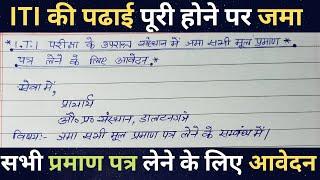 ITI की पढाई पूरी होने पर जमा
* I.T.I परीक्षा के उपरान्त संस्थान में जमा सभी मूल प्रमाण
पत्र लेने के लिए आवेदन *
सेवा में,
प्राचार्य
औ० प्र० संस्थान, डालटनगंज
विषय:- जमा सभी मूल प्रमाण पत्र लेने के सम्बंध में।
सभी प्रमाण पत्र लेने के लिए आवेदन